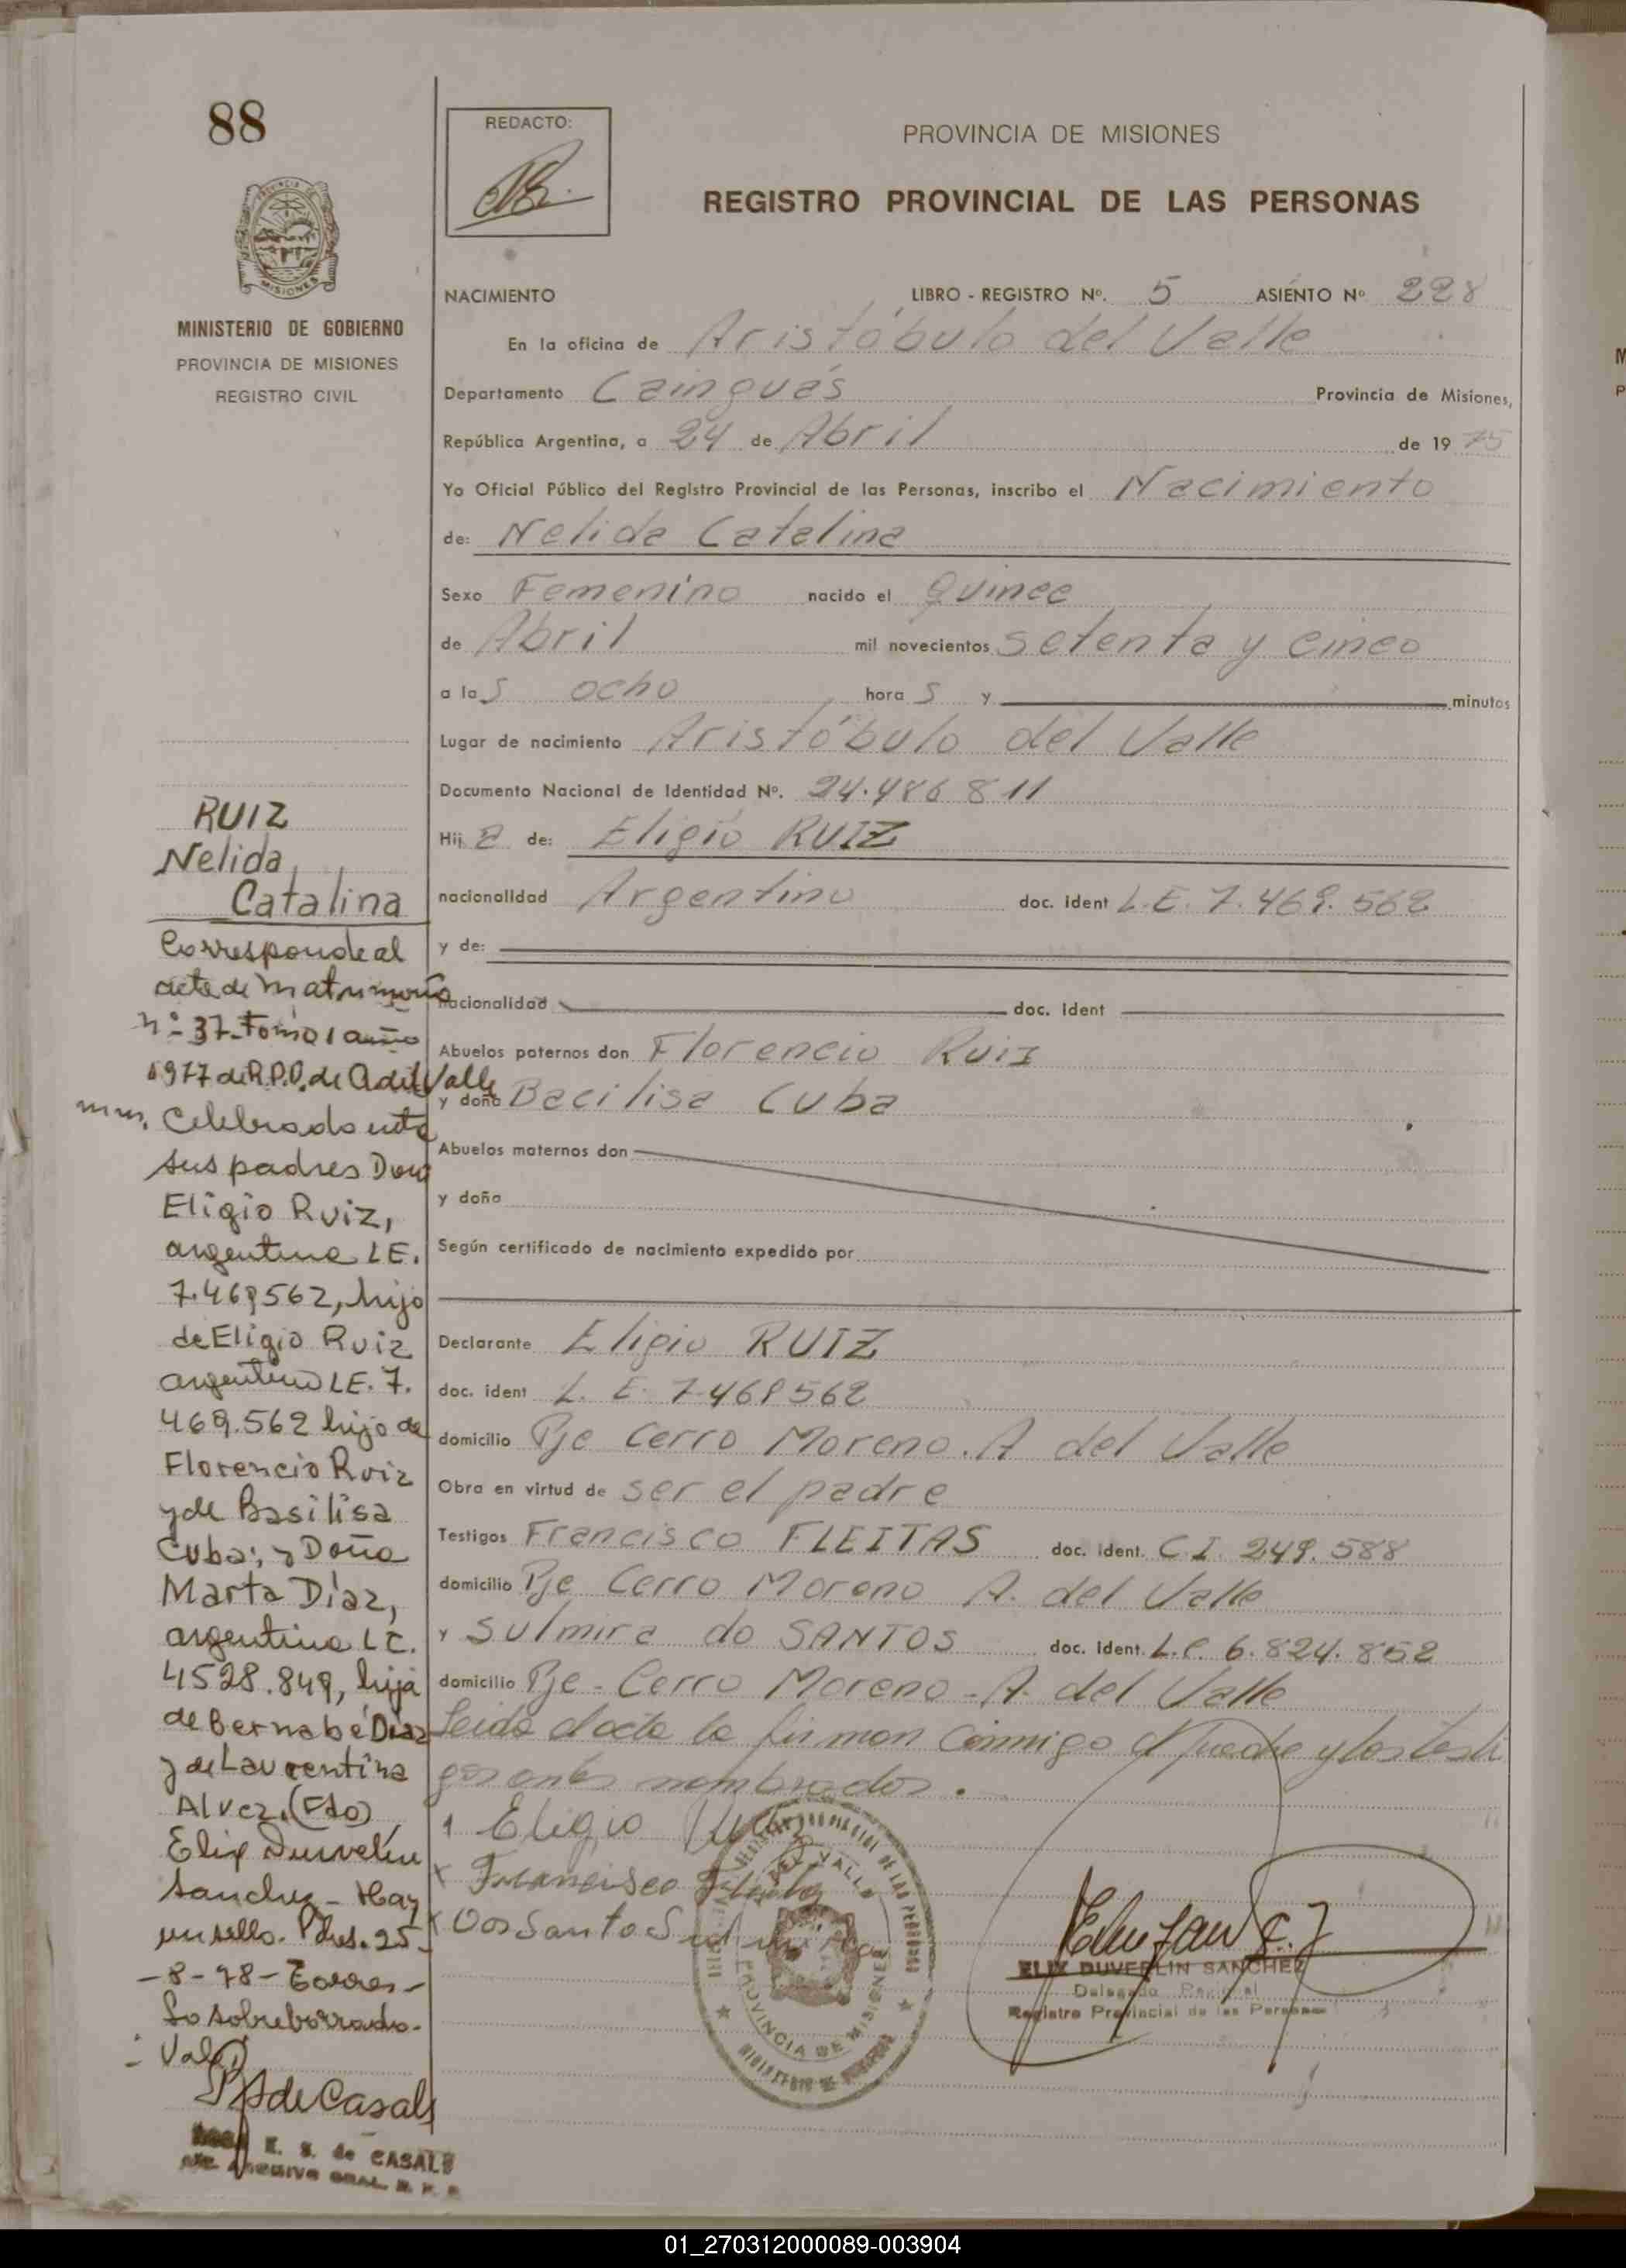 88
REDACTO:
PROVINCIA DE MISIONES
REGISTRO PROVINCIAL DE LAS PERSONAS
MINISTERIO DE GOBIERNO
PROVINCIA DE MISIONES
REGISTRO CIVIL
NACIMIENTO LIBRO - REGISTRO Nº. 5 ASIENTO Nº 228
En la oficina de Aristóbulo del Valle
Departamento Cainguás Provincia de Misiones,
República Argentina, a 24 de Abril de 1975
Yo Oficial Público del Registro Provincial de las Personas, inscribo el Nacimiento
de: Nelida Catalina
Sexo Femenino nacido el Quince
de Abril mil novecientos setenta y cinco
a las ocho horas y minutos
Lugar de nacimiento Aristóbulo del Valle
Documento Nacional de Identidad Nº. 24.486811
Hija de: Eligio RUIZ
nacionalidad Argentino doc. ident L.E. 7.469.562
y de:
nacionalidad doc. ident
Abuelos paternos don Florencio Ruiz
y doña Bacilisa Cuba
Abuelos maternos don
y doña
Según certificado de nacimiento expedido por
Declarante Eligio RUIZ
doc. ident L.E. 7.469562
domicilio Pje Cerro Moreno. A del Valle
Obra en virtud de ser el padre
Testigos Francisco FLEITAS doc. ident. C.I. 249.588
domicilio Pje Cerro Moreno A. del Valle
y Sulmira do SANTOS doc. ident. L.C. 6.824.852
domicilio Pje - Cerro Moreno - A. del Valle
Leida el acta la firman conmigo el padre y los testi
gos antes nombrados.
Eligio Ruiz
Francisco Fleitas
Dos Santos Sulmira
ELIX DUVERLIN SANCHEZ
Delegado
Registro Provincial de las Personas
PROVINCIA DE MISIONES
RUIZ
Nelida
Catalina
Corresponde al
acta de matrimonio
nº 37-Tomo 1 año
1977 de R.P.P. de A del Valle
mnes. Celebrado entre
sus padres Don
Eligio Ruiz,
argentino LE.
7.469562, hijo
de Eligio Ruiz
argentino LE. 7.
469.562 hijo de
Florencio Ruiz
y de Basilisa
Cuba; y Doña
Marta Díaz,
argentina LC.
4528.849, hija
de Bernabé Díaz
y de Laurentina
Alvez. (Fdo)
Elix Duverlin
Sanchez - Hay
un sello. Pdas. 25-
-8-78- Torres-
Lo sobreborrado-
Vale
de Casals
E. S. de CASALS
ARCHIVO GRAL. R. P. P.
01_270312000089-003904